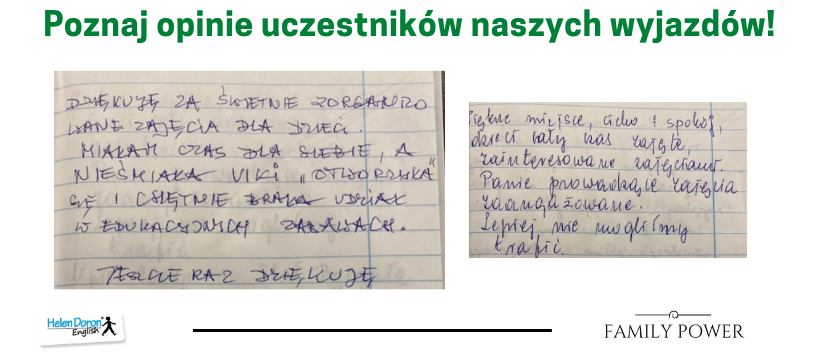 Poznaj opinie uczestników naszych wyjazdów!
DZIĘKUJĘ ZA ŚWIETNIE ZORGANIZO
WANE ZAJĘCIA DLA DZIECI.
MIAŁAM CZAS DLA SIEBIE, A
NIEŚMIAŁA VIKI „OTWORZYŁA"
SIĘ I CHĘTNIE BRAŁA UDZIAŁ
W EDUKACYJNYCH ZABAWACH.
JESZCZE RAZ DZIĘKUJĘ
Piękne miejsce, cicho i spokój,
dzieci cały czas zajęte,
zainteresowane zajęciami.
Panie prowadzące zajęcia
zaangażowane.
Lepiej nie mogliśmy
trafić.
Helen Doron
English
FAMILY POWER